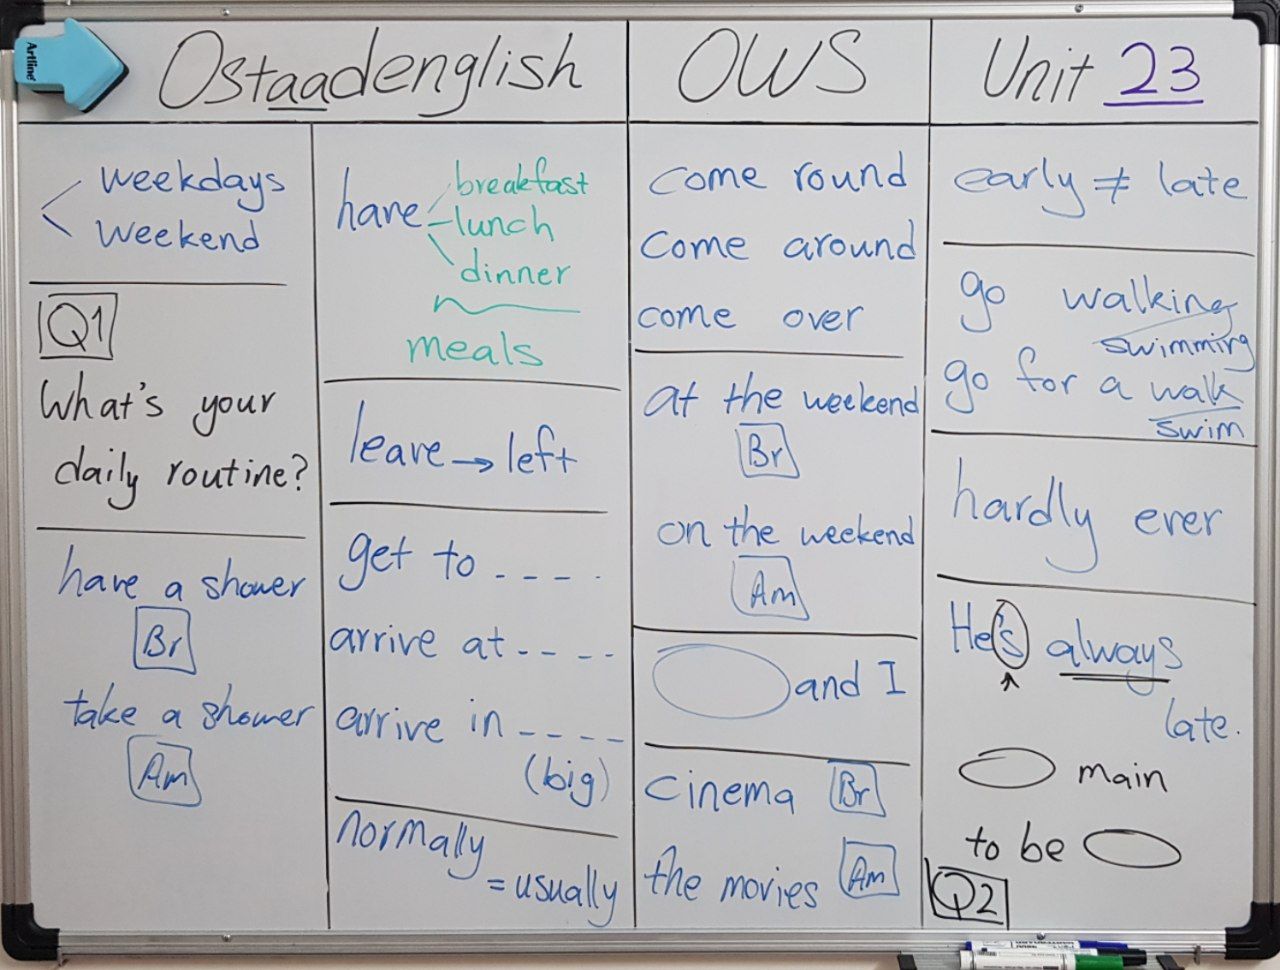 Artline
Ostaadenglish
OWS
Unit 23
weekdays
weekend
Q1
What's your
daily routine?
have a shower
Br
take a shower
Am
have
breakfast
lunch
dinner
meals
leave → left
get to ----
arrive at ----
arrive in ----
(big)
normally
= usually
come round
come around
come over
at the weekend
Br
on the weekend
Am
and I
cinema Br
the movies Am
early ≠ late
go walking
swimming
go for a walk
swim
hardly ever
He's always
late.
main
to be
Q2